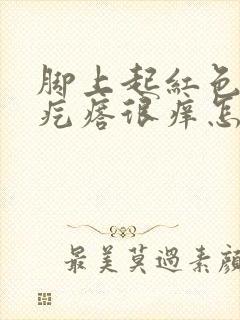 脚上起红色
疙瘩很痒怎
最美莫過素顔